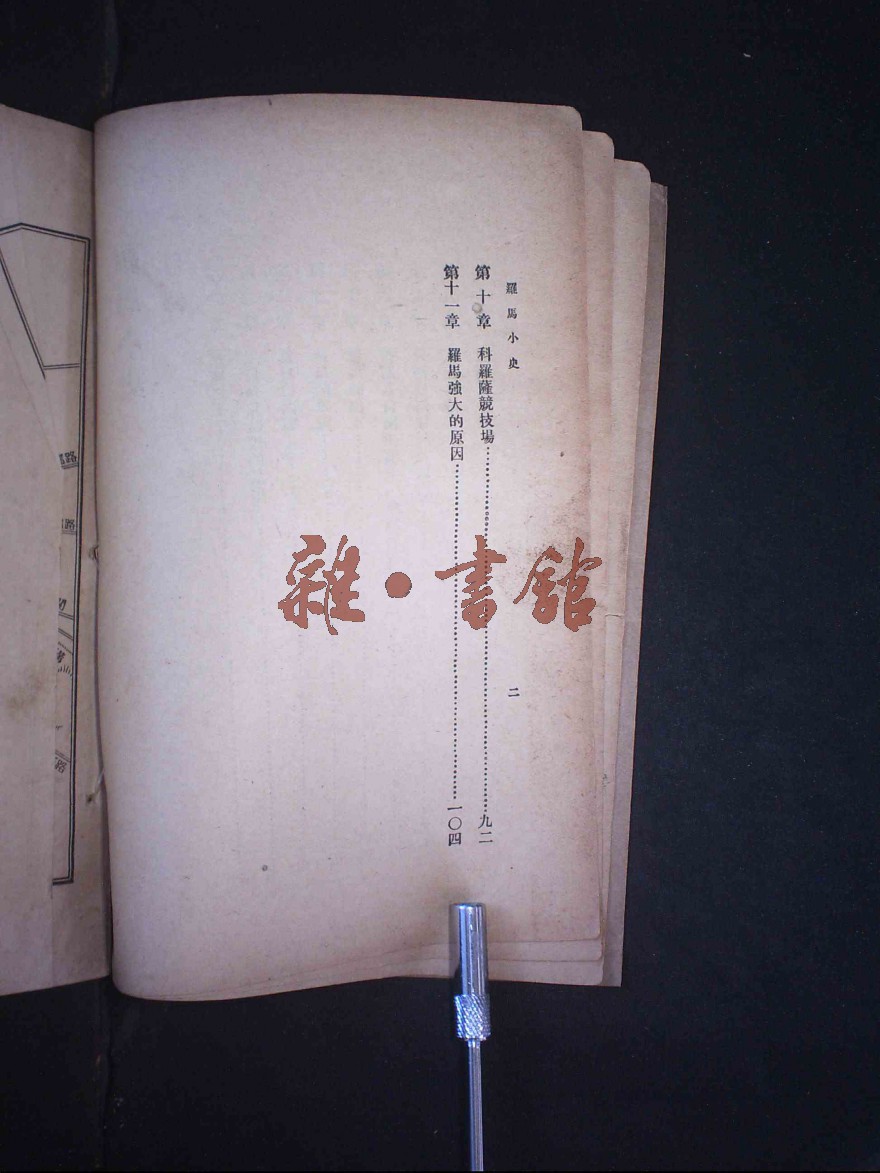 羅馬小史
二
第十章 科羅薩競技場……九二
第十一章 羅馬強大的原因……一〇四
雜·書館
路
路
路